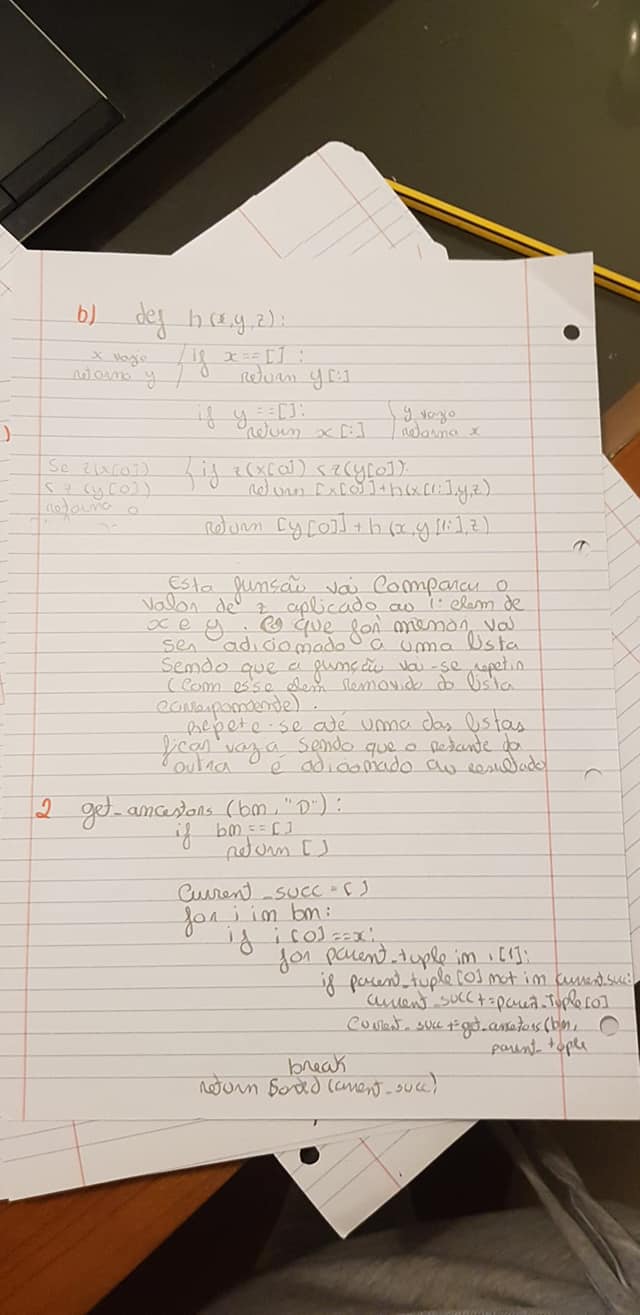 b) def h(x,y,z):
x vazio
retorna y
if x==[]:
return y[:]
if y==[]:
return x[:]
y vazo
retorna x
se z(x[0])
≤ z(y[0])
retorna o
if z(x[0]) ≤ z(y[0]):
return [x[0]]+h(x[1:],y,z)
return [y[0]]+h(x,y[1:],z)
Esta funsão vai Comparar o
valor de z aplicado ao 1º elem de
x e y. O que for menor vai
ser adicionado a uma lista
sendo que a função vai-se repetir
(com esse elem removido da lista
correspondente).
Repete-se até uma das listas
ficar vazia sendo que o restante da
outra é adicionado ao resultado
2 get_ancestors (bm,"D"):
if bm==[]
return []
Current_succ=[]
for i in bm:
if i[0]==x:
for parent_tuple in i[1]:
if parent_tuple[0] not in current_succ:
current_succ+=parent_tuple[0]
current_succ+=get_ancestors(bm,
parent_tuple
break
return Sorted (current_succ)